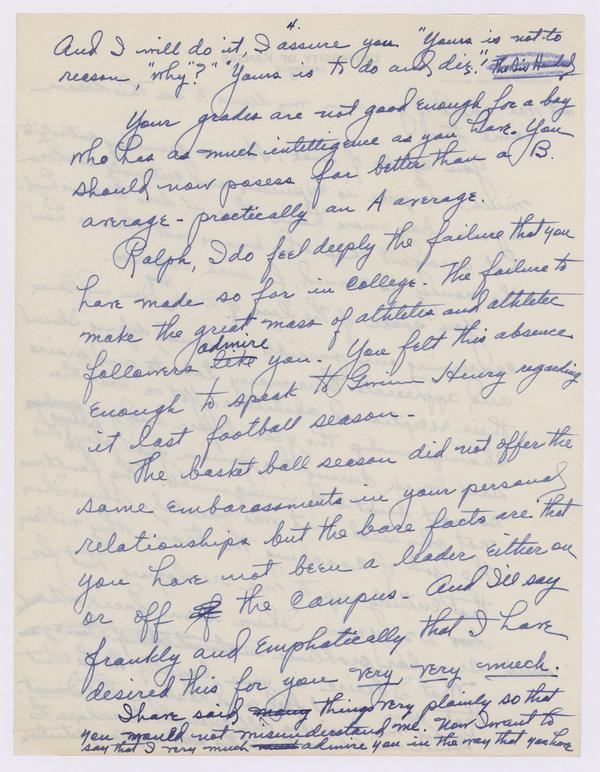 4.
And I will do it, I assure you. "Yours is not to
reason, "why"?" "Yours is to do and die." The Six Hundred
Your grades are not good enough for a boy
who has as much intelligence as you have. You
should now posess far better than a B.
average - practically an A average.
Ralph, I do feel deeply the failure that you
have made so far in college. The failure to
make the great mass of athletics and athletic
admire
followers like you. You felt this absence
enough to speak to Gwinn Henry regarding
it last football season -
The basket ball season did not offer the
same embarassments in your personal
relationships but the bare facts are that
you have not been a leader either on
or off of the campus - And I'll say
frankly and emphatically that I have
desired this for you very very much.
I have said many things very plainly so that
you would not misunderstand me. Now I want to
say that I very much admire you in the way that you have